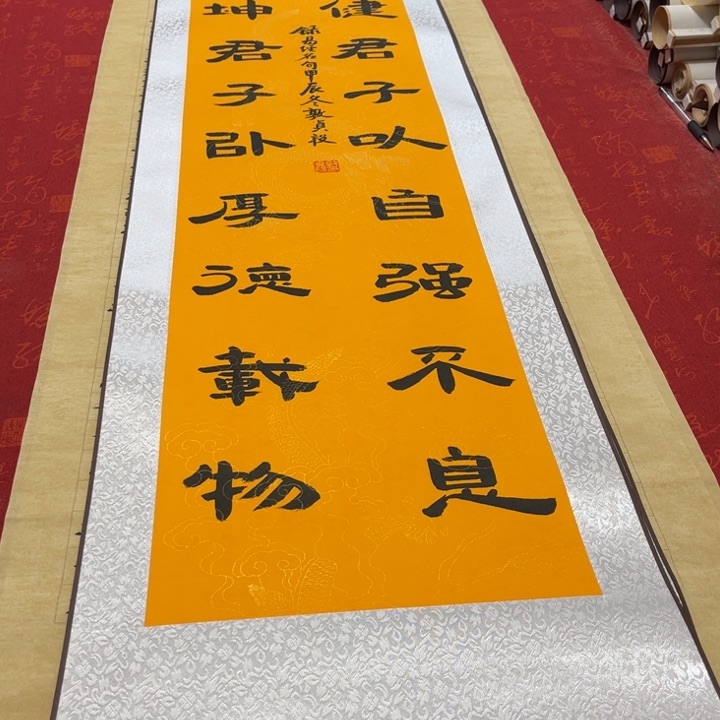 健君子以自强不息
坤君子以厚德載物
錄易经名句甲辰冬